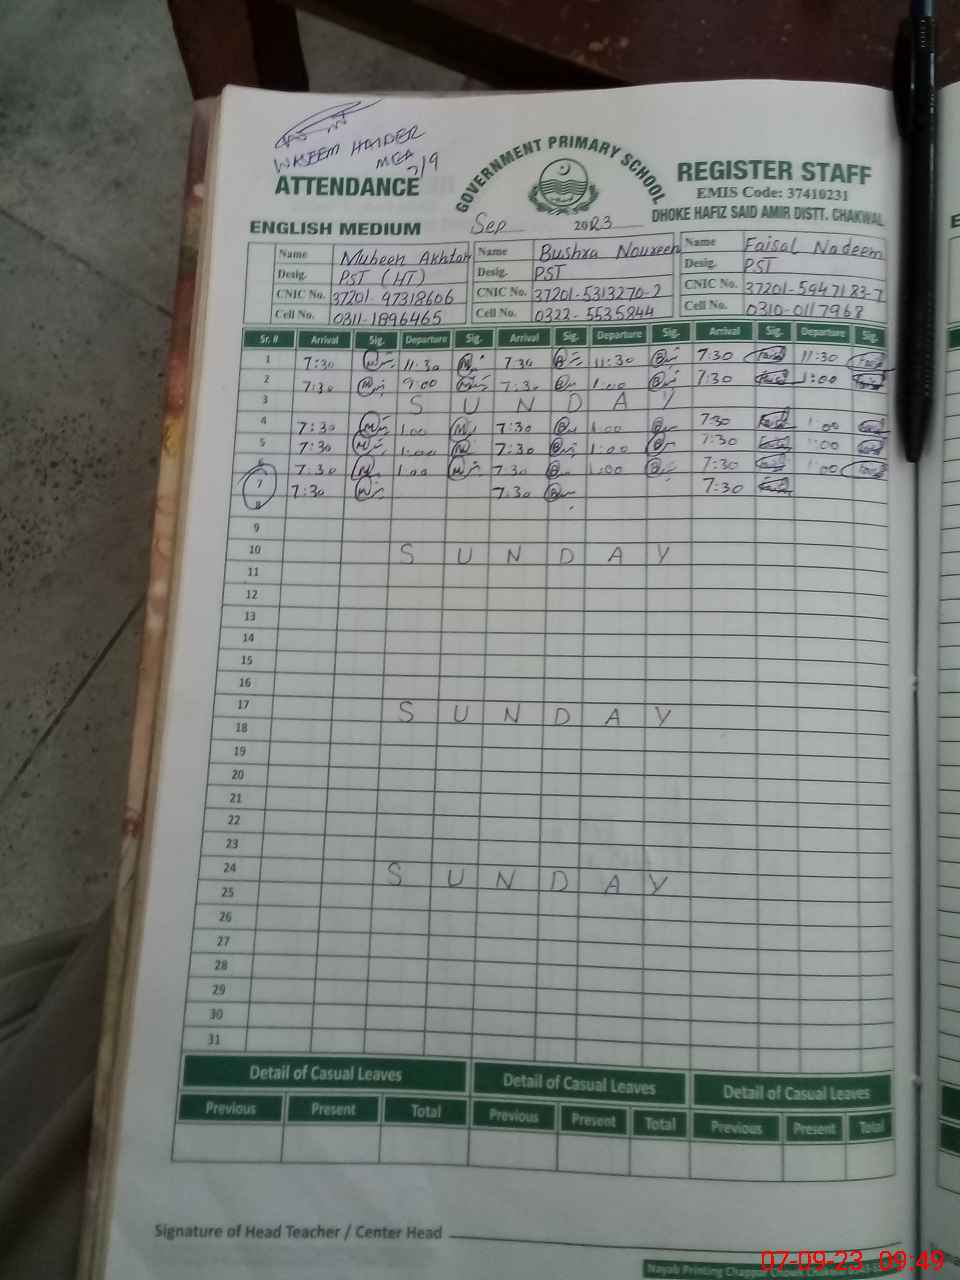 WASEEM HAIDER
MEA
7/9
ATTENDANCE GOVERNMENT PRIMARY SCHOOL REGISTER STAFF
EMIS Code: 37410231
DHOKE HAFIZ SAID AMIR DISTT. CHAKWAL
ENGLISH MEDIUM Sep 2023
Name Mubeen Akhtar Name Bushra Noureen Name Faisal Nadeem
Desig. PST (HT) Desig. PST Desig. PST
CNIC No. 37201-97318606 CNIC No. 37201-5313270-2 CNIC No. 37201-5947183-7
Cell No. 0311-1896465 Cell No. 0322-5535844 Cell No. 0310-0117968
Sr. # Arrival Sig. Departure Sig. Arrival Sig. Departure Sig. Arrival Sig. Departure Sig.
1 7:30 11:30 7:30 11:30 7:30 11:30
2 7:30 9:00 7:30 1:00 7:30 1:00
3 S U N D A Y
4 7:30 1:00 7:30 1:00 7:30 1:00
5 7:30 1:00 7:30 1:00 7:30 1:00
6 7:30 1:00 7:30 1:00 7:30 1:00
7 7:30 7:30 7:30
8
9
10 S U N D A Y
11
12
13
14
15
16
17 S U N D A Y
18
19
20
21
22
23
24 S U N D A Y
25
26
27
28
29
30
31
Detail of Casual Leaves Detail of Casual Leaves Detail of Casual Leaves
Previous Present Total Previous Present Total Previous Present Total
Signature of Head Teacher / Center Head
Nayab Printing
07-09-23 09:49